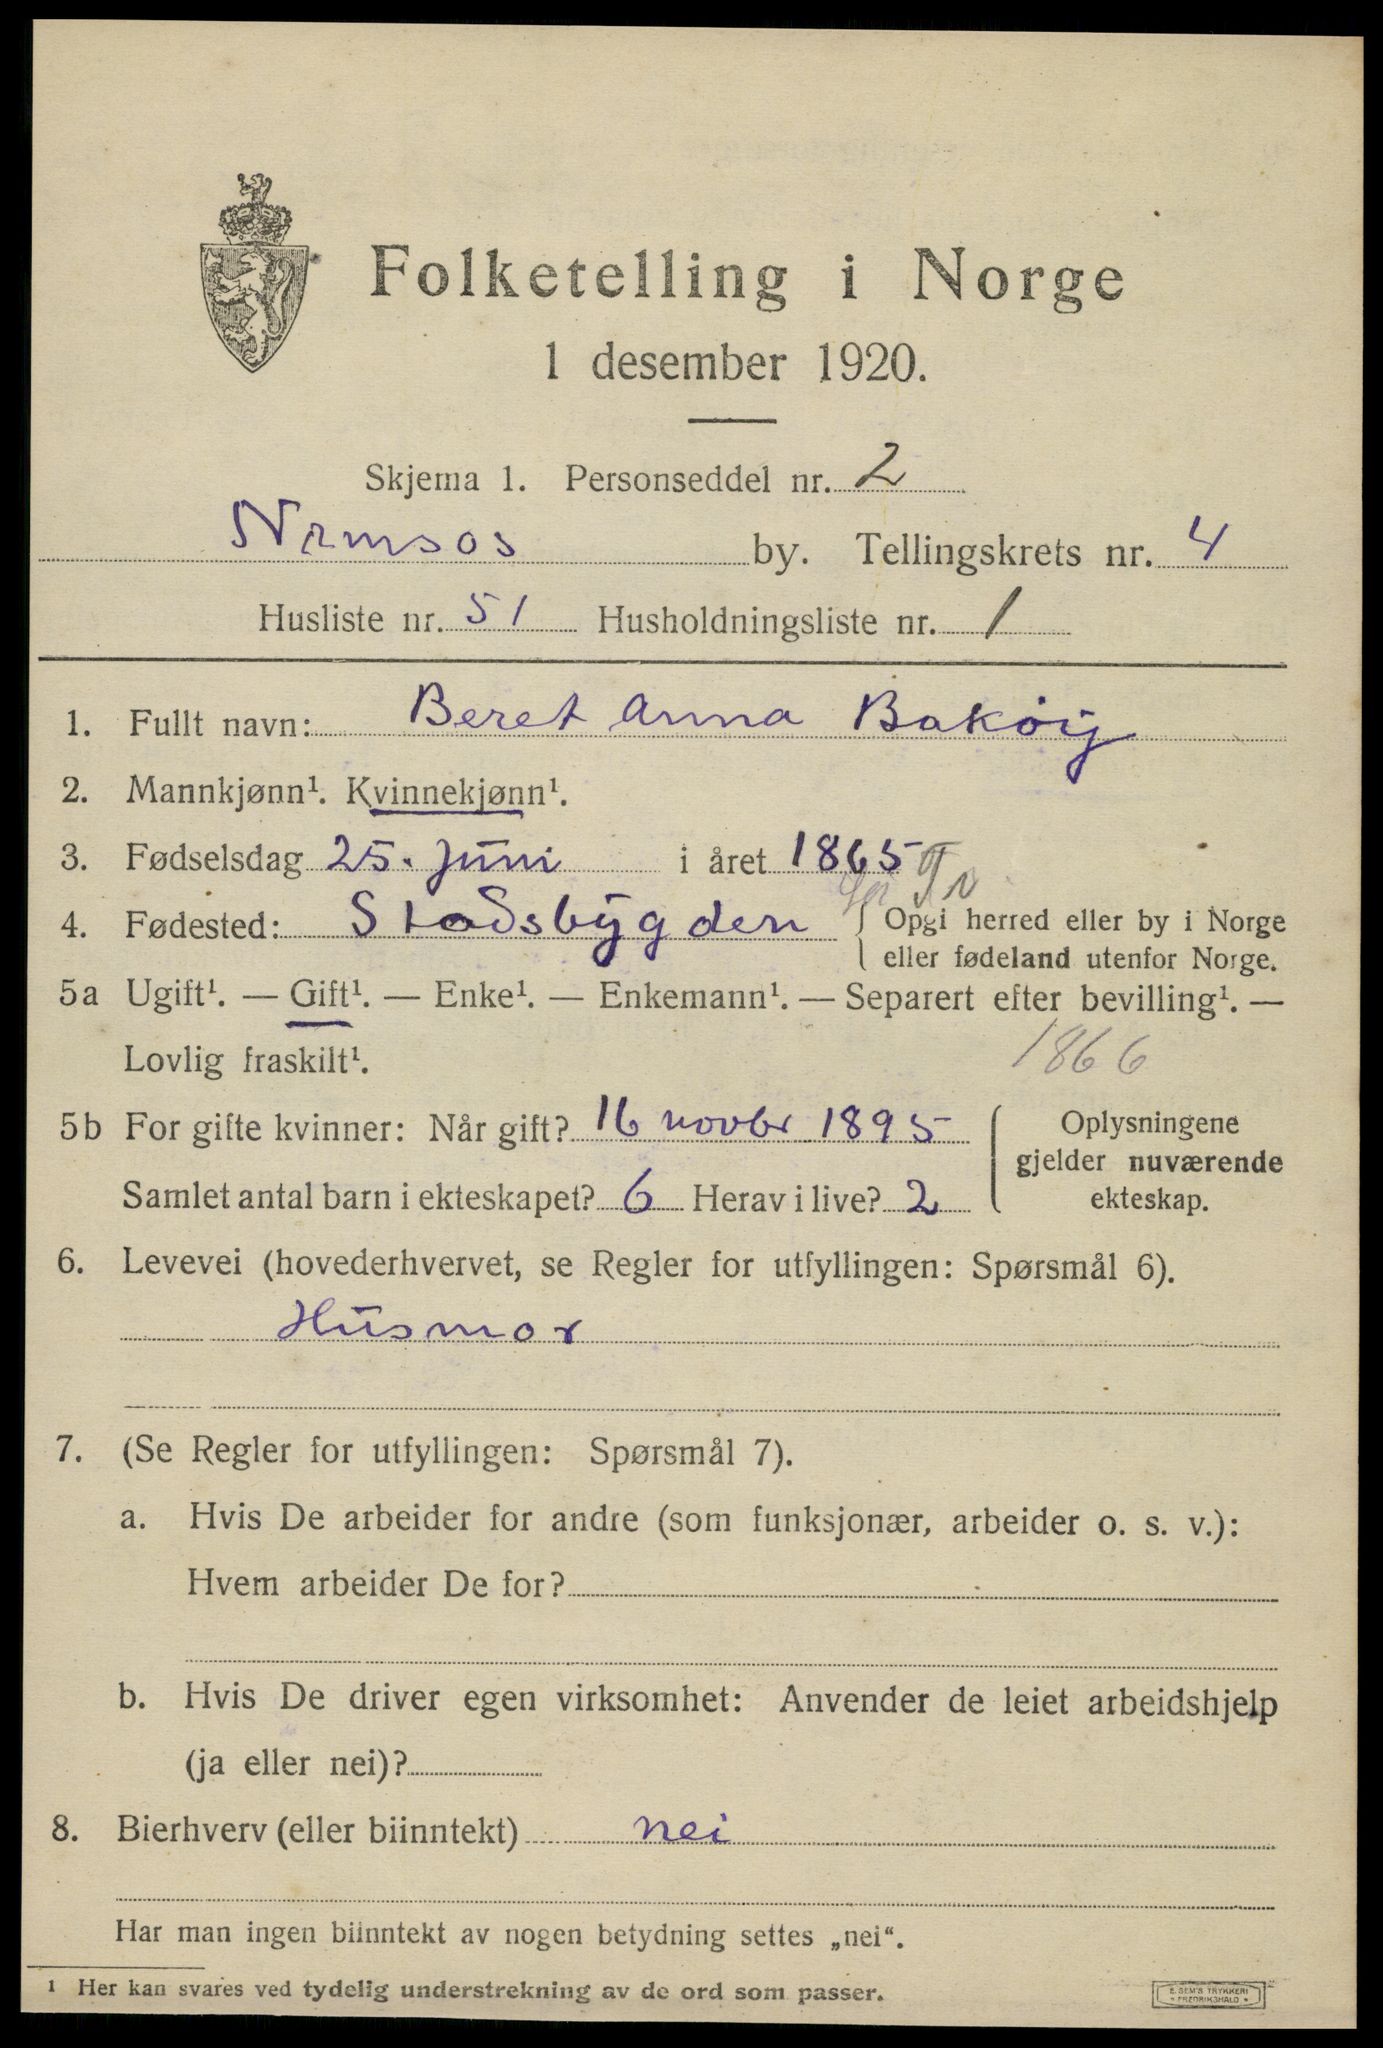 Folketelling i Norge
1 desember 1920.
Skjema 1. Personseddel nr. 2
Namsos by. Tellingskrets nr. 4
Husliste nr. 51 Husholdningsliste nr. 1
1. Fullt navn: Beret Anna Bakøy
2. Mannkjønn¹. Kvinnekjønn¹.
3. Fødselsdag 25. Juni i året 1865
Sør Tr
4. Fødested: Stadsbygden { Opgi herred eller by i Norge
eller fødeland utenfor Norge.
5a Ugift¹. — Gift¹. — Enke¹. — Enkemann¹. — Separert efter bevilling¹. —
Lovlig fraskilt¹.
1866
5b For gifte kvinner: Når gift? 16 novbr 1895 { Oplysningene
gjelder nuværende
Samlet antal barn i ekteskapet? 6 Herav i live? 2 ekteskap.
6. Levevei (hovederhvervet, se Regler for utfyllingen: Spørsmål 6).
Husmor
7. (Se Regler for utfyllingen: Spørsmål 7).
a. Hvis De arbeider for andre (som funksjonær, arbeider o. s. v.):
Hvem arbeider De for?
b. Hvis De driver egen virksomhet: Anvender de leiet arbeidshjelp
(ja eller nei)?
8. Bierhverv (eller biinntekt) nei
Har man ingen biinntekt av nogen betydning settes „nei“.
1 Her kan svares ved tydelig understrekning av de ord som passer.
E. SEM'S TRYKKERI
• FREDRIKSHALD •